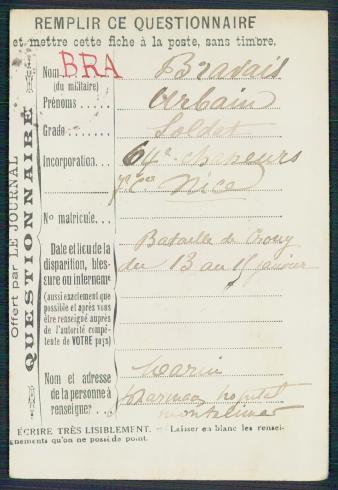 REMPLIR CE QUESTIONNAIRE
et mettre cette fiche à la poste, sans timbre.
Offert par LE JOURNAL
QUESTIONNAIRE
BRA
Nom Bravais
(du militaire)
Prénoms . . . Urbain
Grade . . . . . . Soldat
Incorporation. . . 64e chasseurs
Nice
No matricule. . .
Date et lieu de la Bataille de Crouy
disparition, bles- du 13 au 15 janvier
sure ou internemt
(aussi exactement que
possible et après vous
être renseigné auprès
de l'autorité compé-
tente de VOTRE pays)
Marin
Nom et adresse
de la personne à hopital
renseigner . . . montelimar
ÉCRIRE TRÈS LISIBLEMENT. — Laisser en blanc les rensei-
gnements qu'on ne possède point.